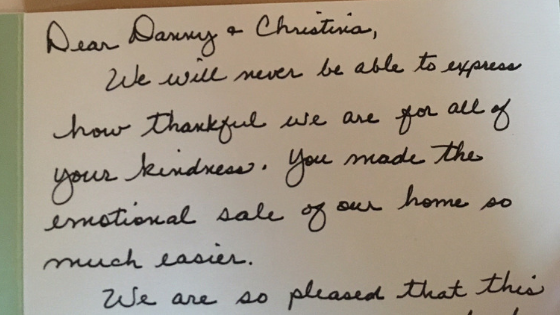 Dear Danny & Christina,
We will never be able to express
how thankful we are for all of
your kindness. You made the
emotional sale of our home so
much easier.
We are so pleased that this